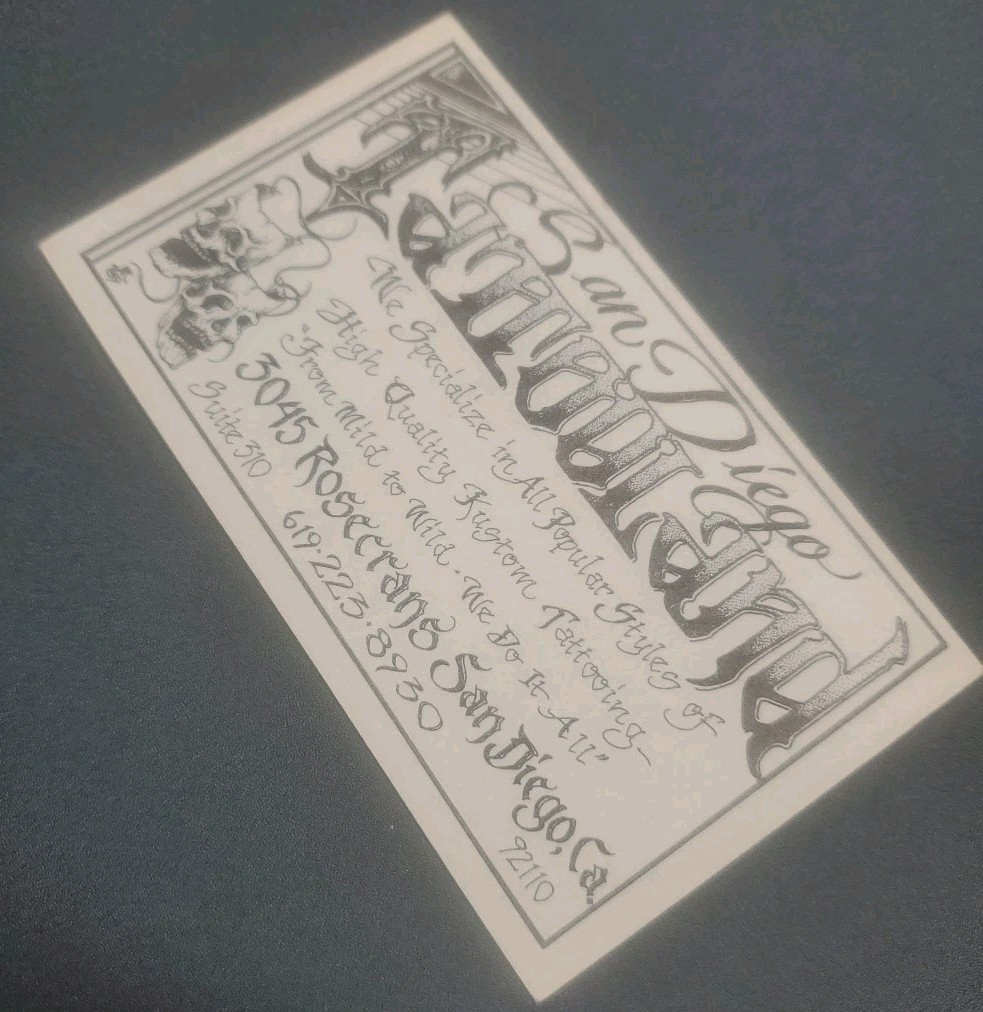 San Diego
Tattooland
We Specialize in All Popular Styles of
High Quality Kustom Tattooing~
"From Mild to Wild. We Do It All"
3045 Rosecrans San Diego, Ca.
Suite 310
92110
619.223.8930